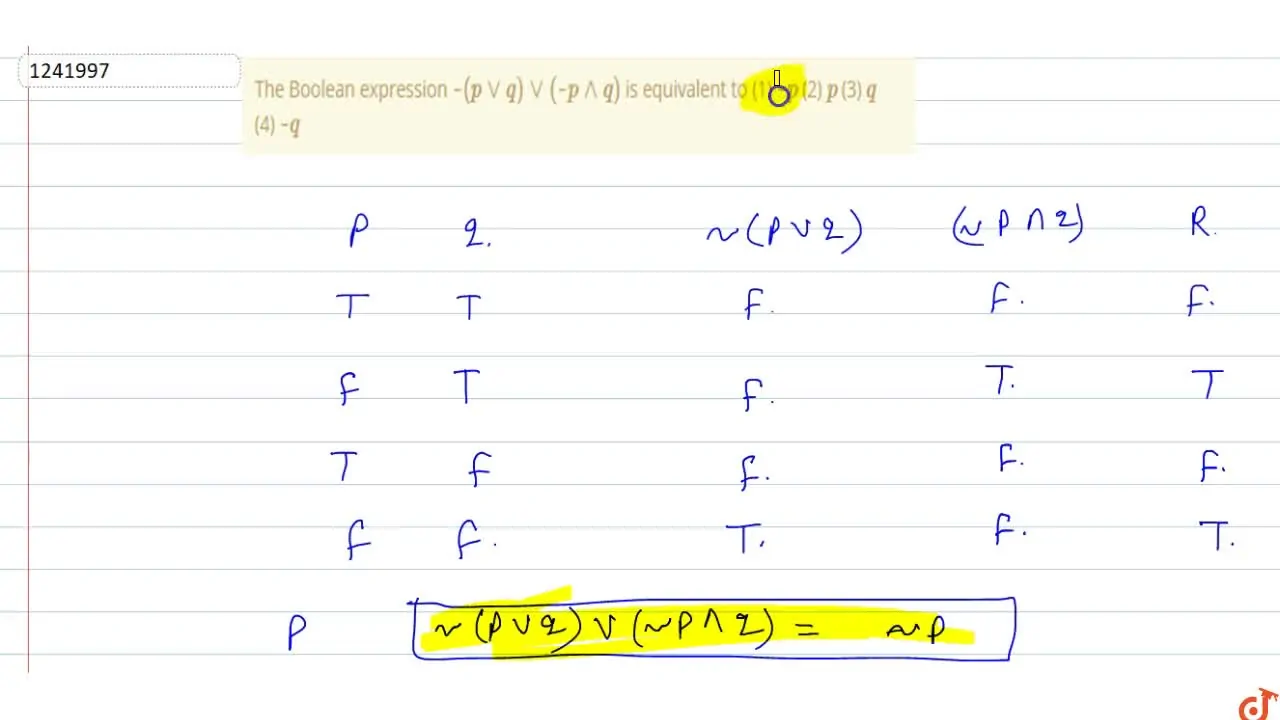 1241997
The Boolean expression -(p ∨ q) ∨ (-p ∧ q) is equivalent to (1) p (2) p (3) q
(4) -q
P q. ~(P∨q) (~P∧q) R.
T T F. F. F.
F T F. T. T
T F F. F. F.
F F. T. F. T.
P ~(P∨q)∨(~P∧q) = ~P